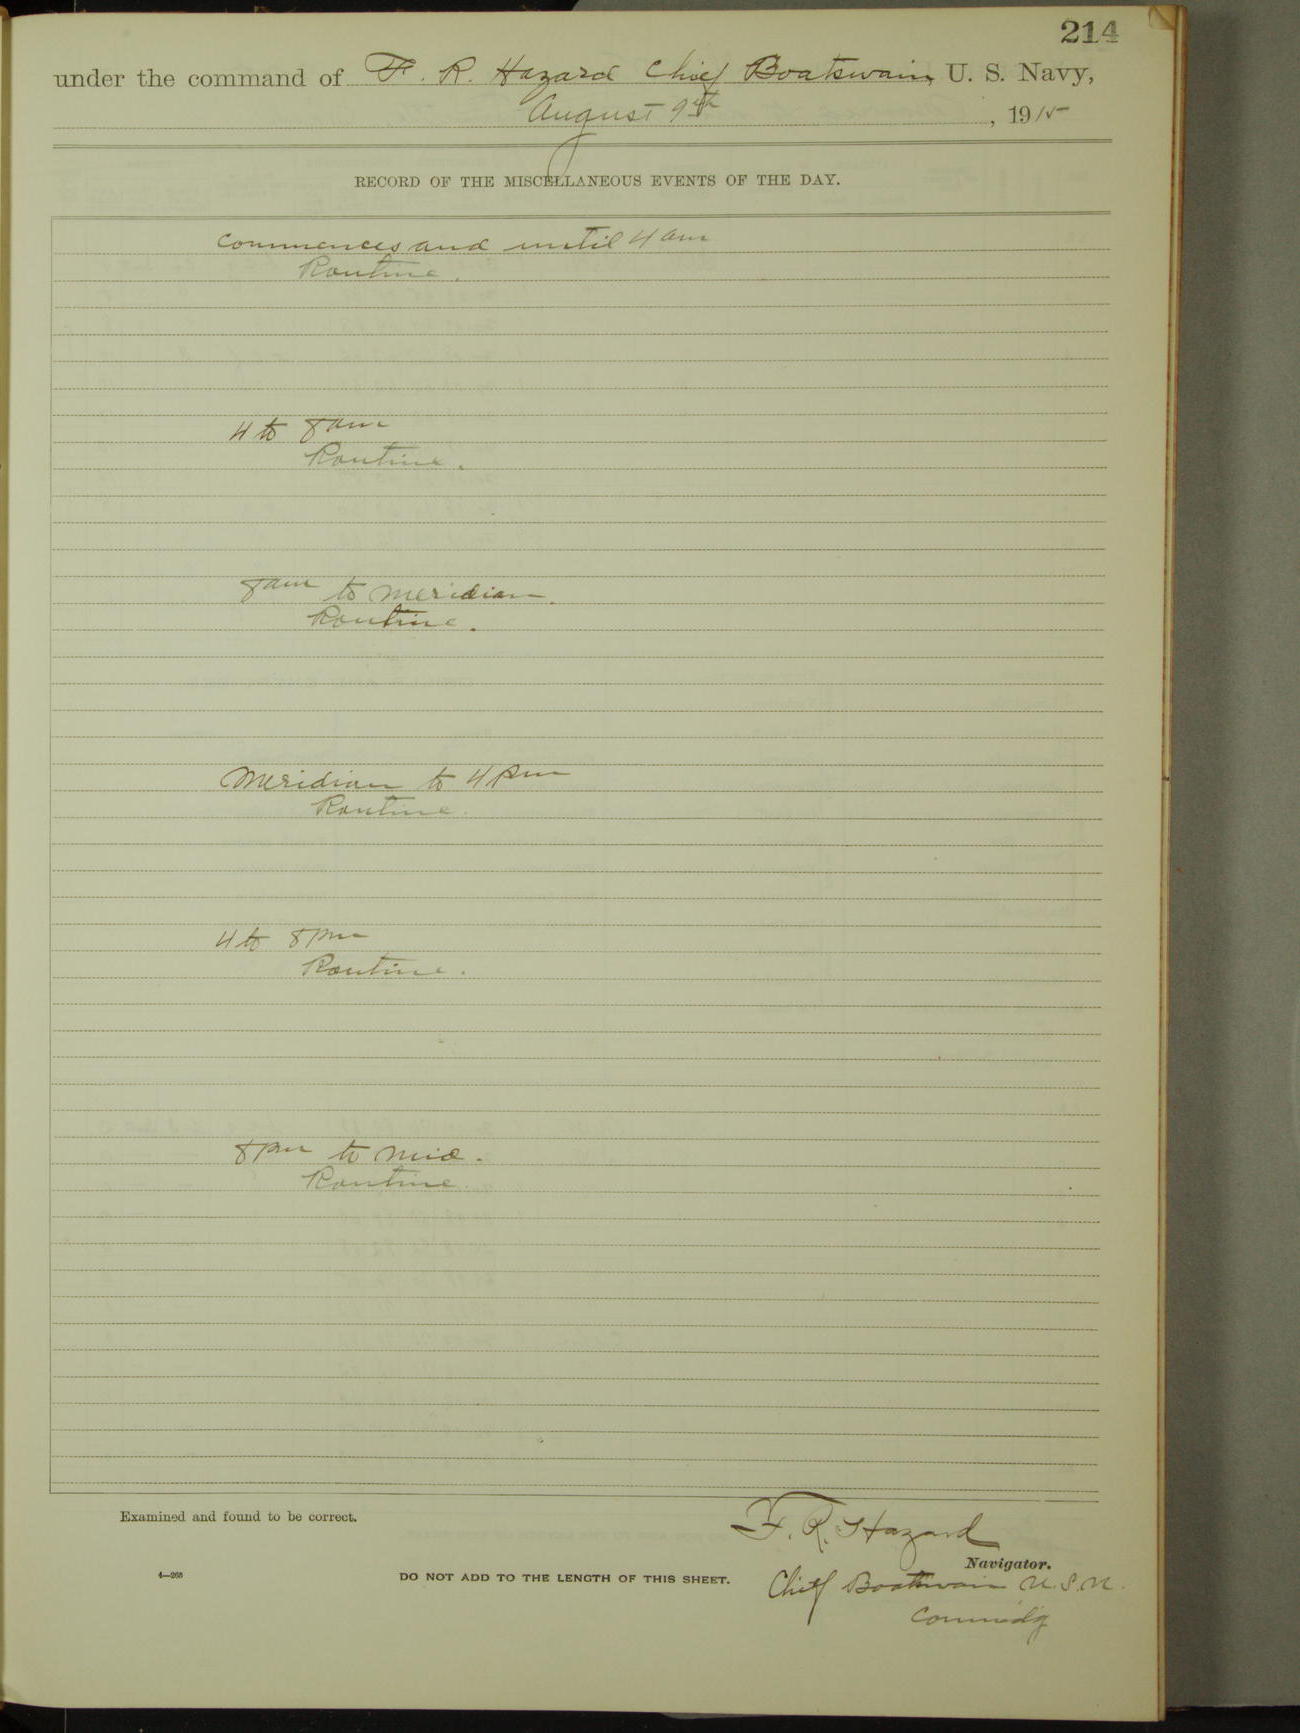 214
under the command of F. R. Hazard Chief Boatswain, U. S. Navy,
August 9th, 1915
RECORD OF THE MISCELLANEOUS EVENTS OF THE DAY.
Commences and until 4 am
Routine.
4 to 8 am
Routine.
8 am to Meridian.
Routine.
Meridian to 4 pm
Routine.
4 to 8 pm
Routine.
8 pm to mid.
Routine.
Examined and found to be correct.
F. R. Hazard
Navigator.
4—265 DO NOT ADD TO THE LENGTH OF THIS SHEET.
Chief Boatswain U.S.N.
Commdg